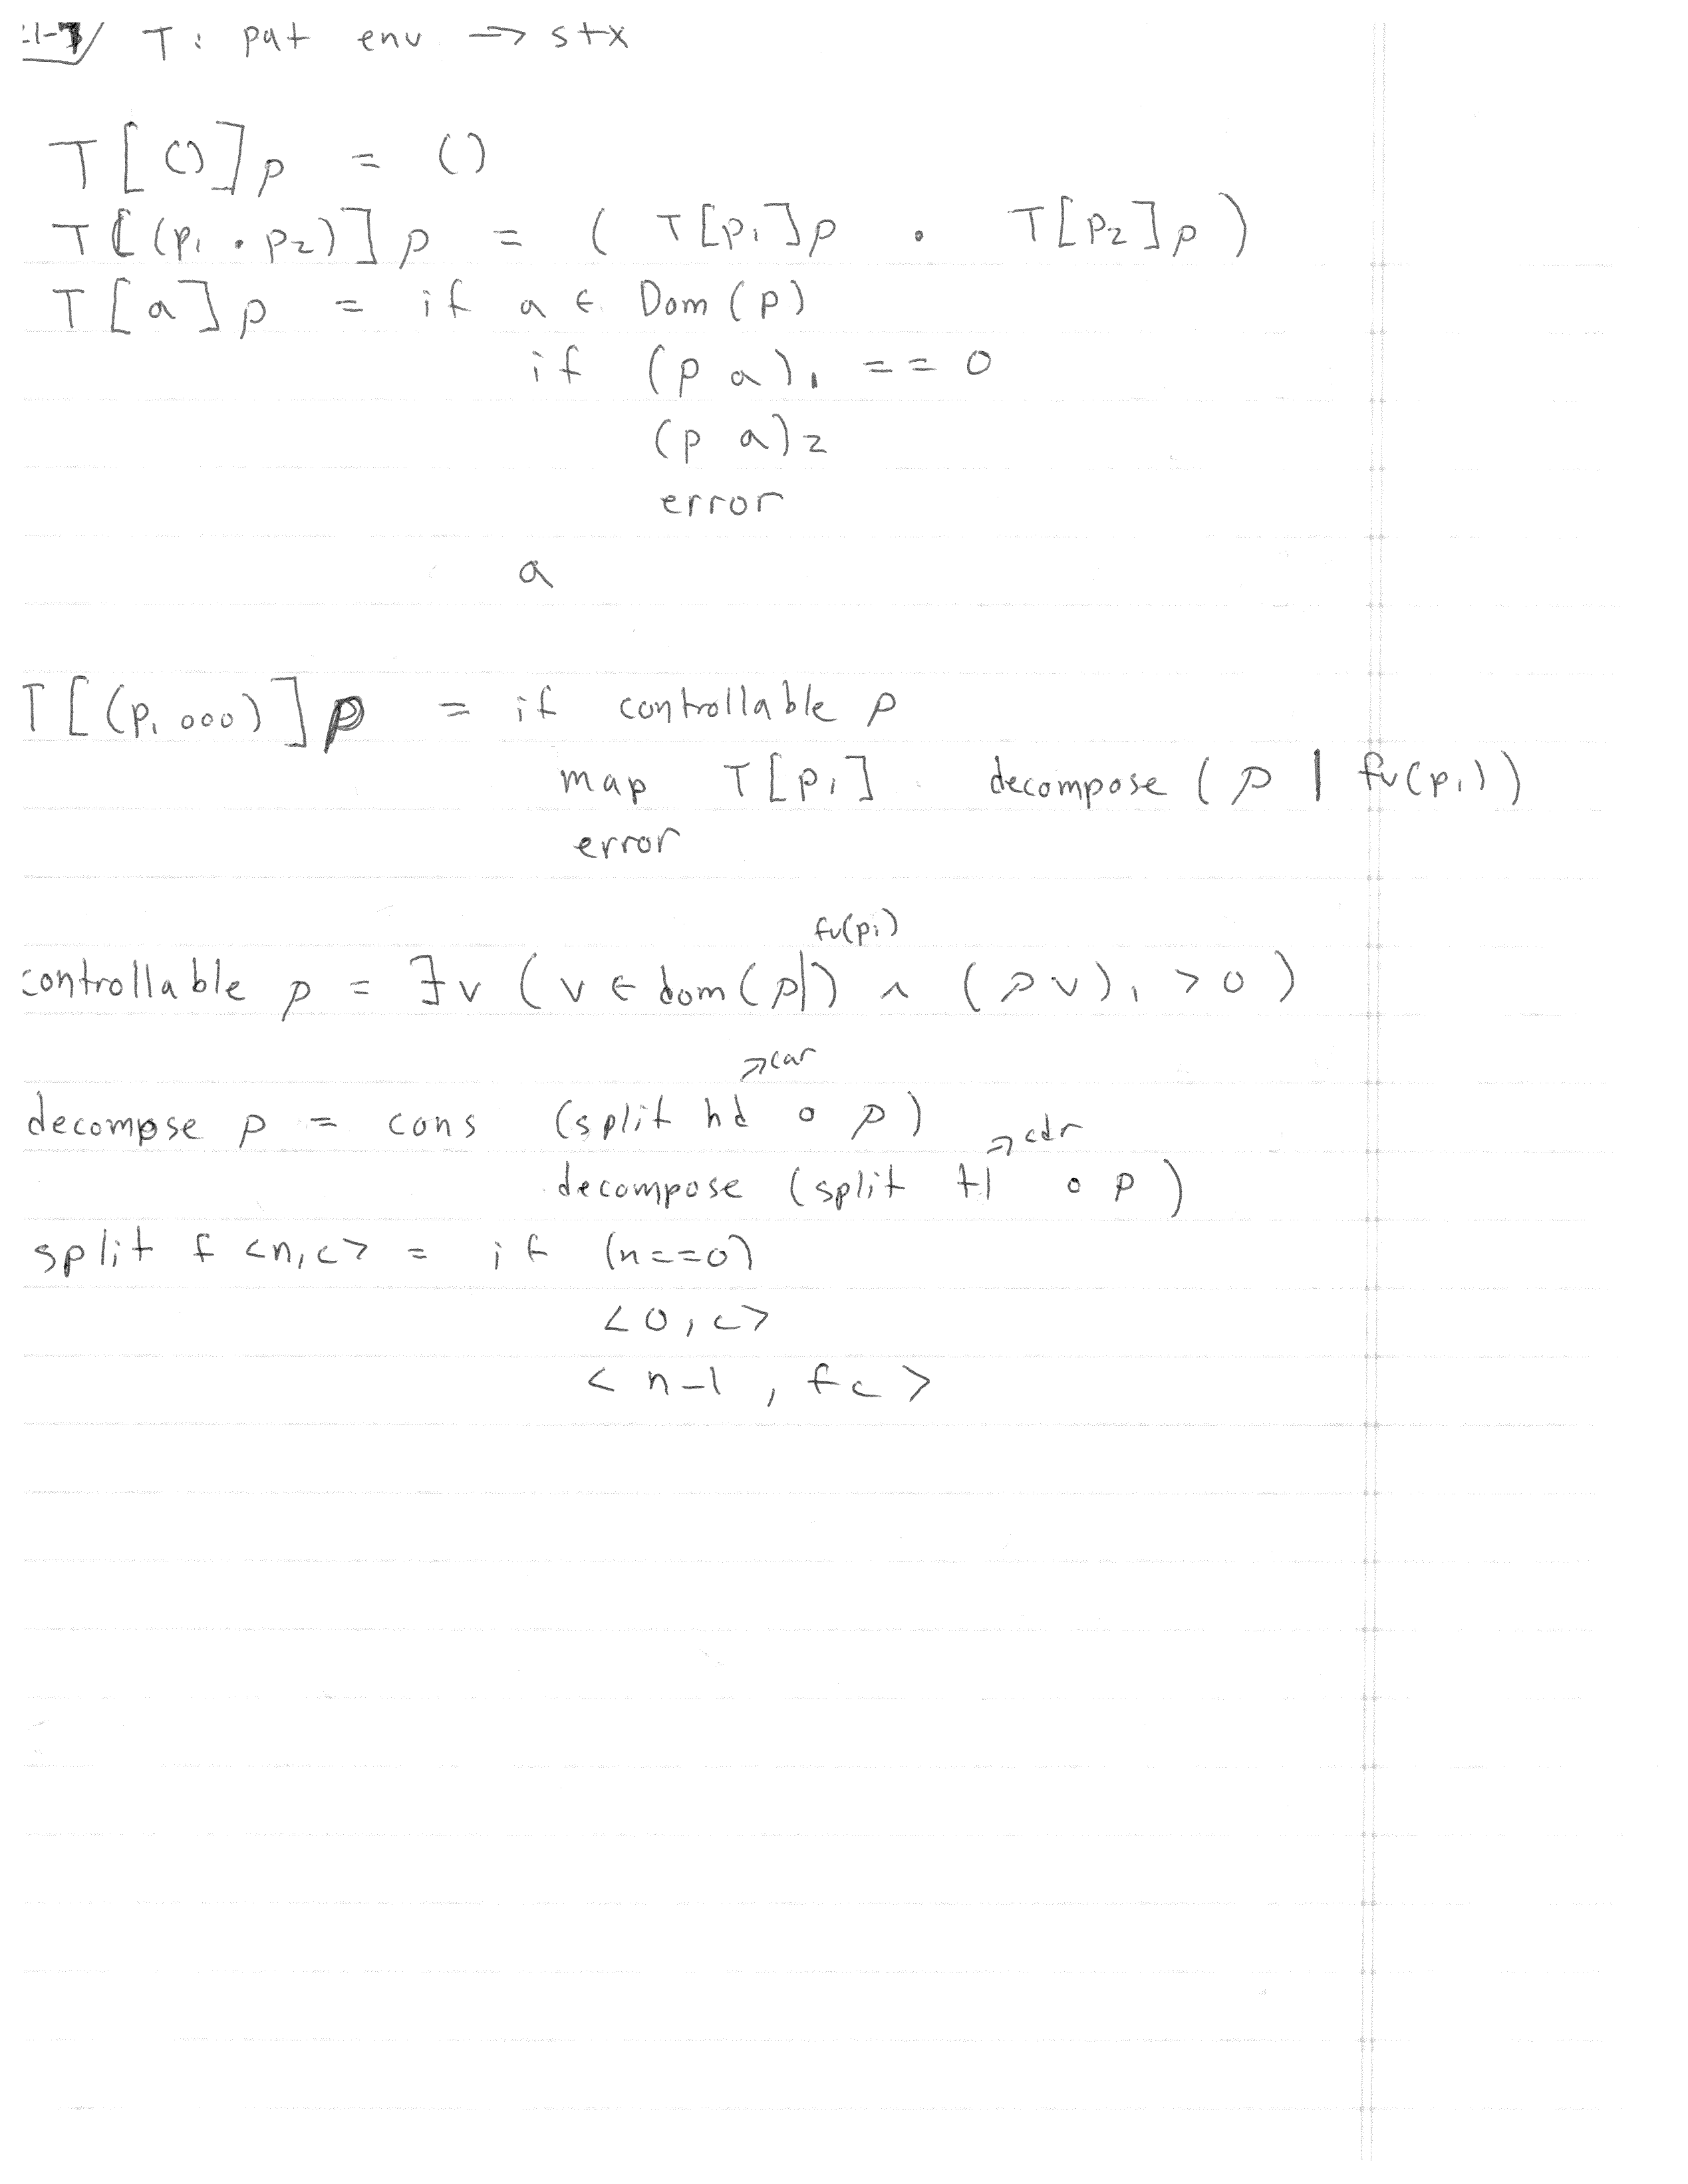 T: pat env → stx
T[()]ρ = ()
T[(p₁ . p₂)]ρ = ( T[p₁]ρ . T[p₂]ρ )
T[a]ρ = if a ∈ Dom(ρ)
if (ρ a)₁ == 0
(ρ a)₂
error
a
T[(p₁ ooo)]ρ = if controllable ρ
map T[p₁] decompose (ρ | fv(p₁))
error
fv(p₁)
controllable ρ = ∃v (v ∈ dom(ρ|) ∧ (ρ v)₁ > 0)
↗car
decompose ρ = cons (split hd ∘ ρ)
↗cdr
decompose (split tl ∘ ρ)
split f <n,c> = if (n==0)
<0,c>
<n-1, f c>